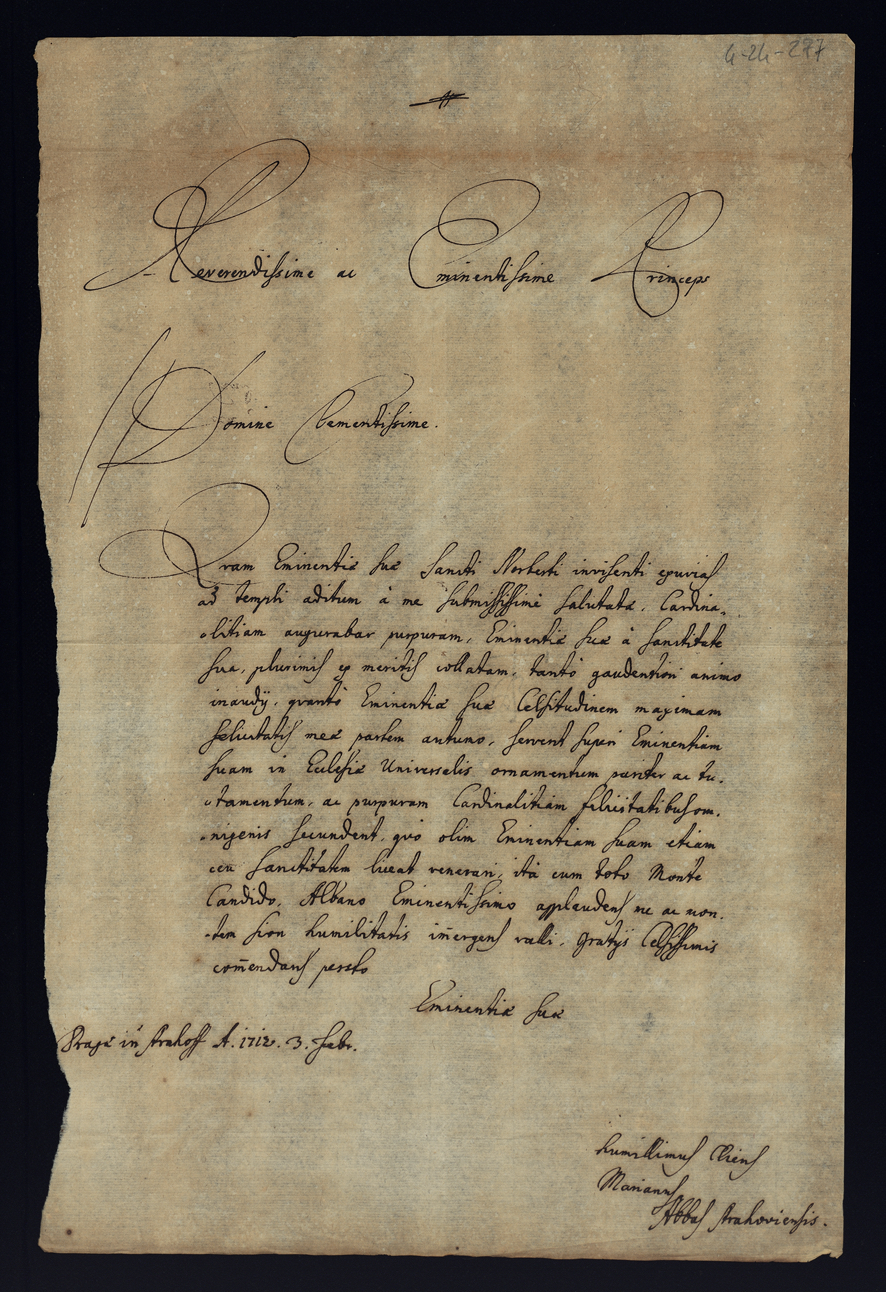 4-24-277
Reverendissime ac Eminentissime Princeps
Domine Clementissime.
Quam Eminentiæ suæ Sancti Norberti invisenti exuvias
ad templi aditum à me submississimè salutatæ, Cardina-
-litiam augurabar purpuram, Eminentiæ suæ à sanctitate
sua, plurimis ex meritis collatam, tantò gaudentiori animo
inaudij, quantò Eminentiæ suæ Celsitudinem maximam
felicitatis meæ partem autumo, servent superi Eminentiam
suam in Ecclesiæ Universalis ornamentum pariter ac tu-
-tamentum, ac purpuram Cardinalitiam felicitatibus om-
-nigenis secundent, quò olim Eminentiam suam etiam
ceu sanctitatem liceat venerari, ità cum toto Monte
Candido, Albano Eminentissimo applaudens me ac mon-
-tem sion humilitatis im̄ergens valli, gratijs Celsissimis
com̄endans persto
Eminentiæ suæ
Pragæ in Strahoff A. 1712. 3. Febr.
humillimus Cliens
Marianus
Abbas Strahoviensis.